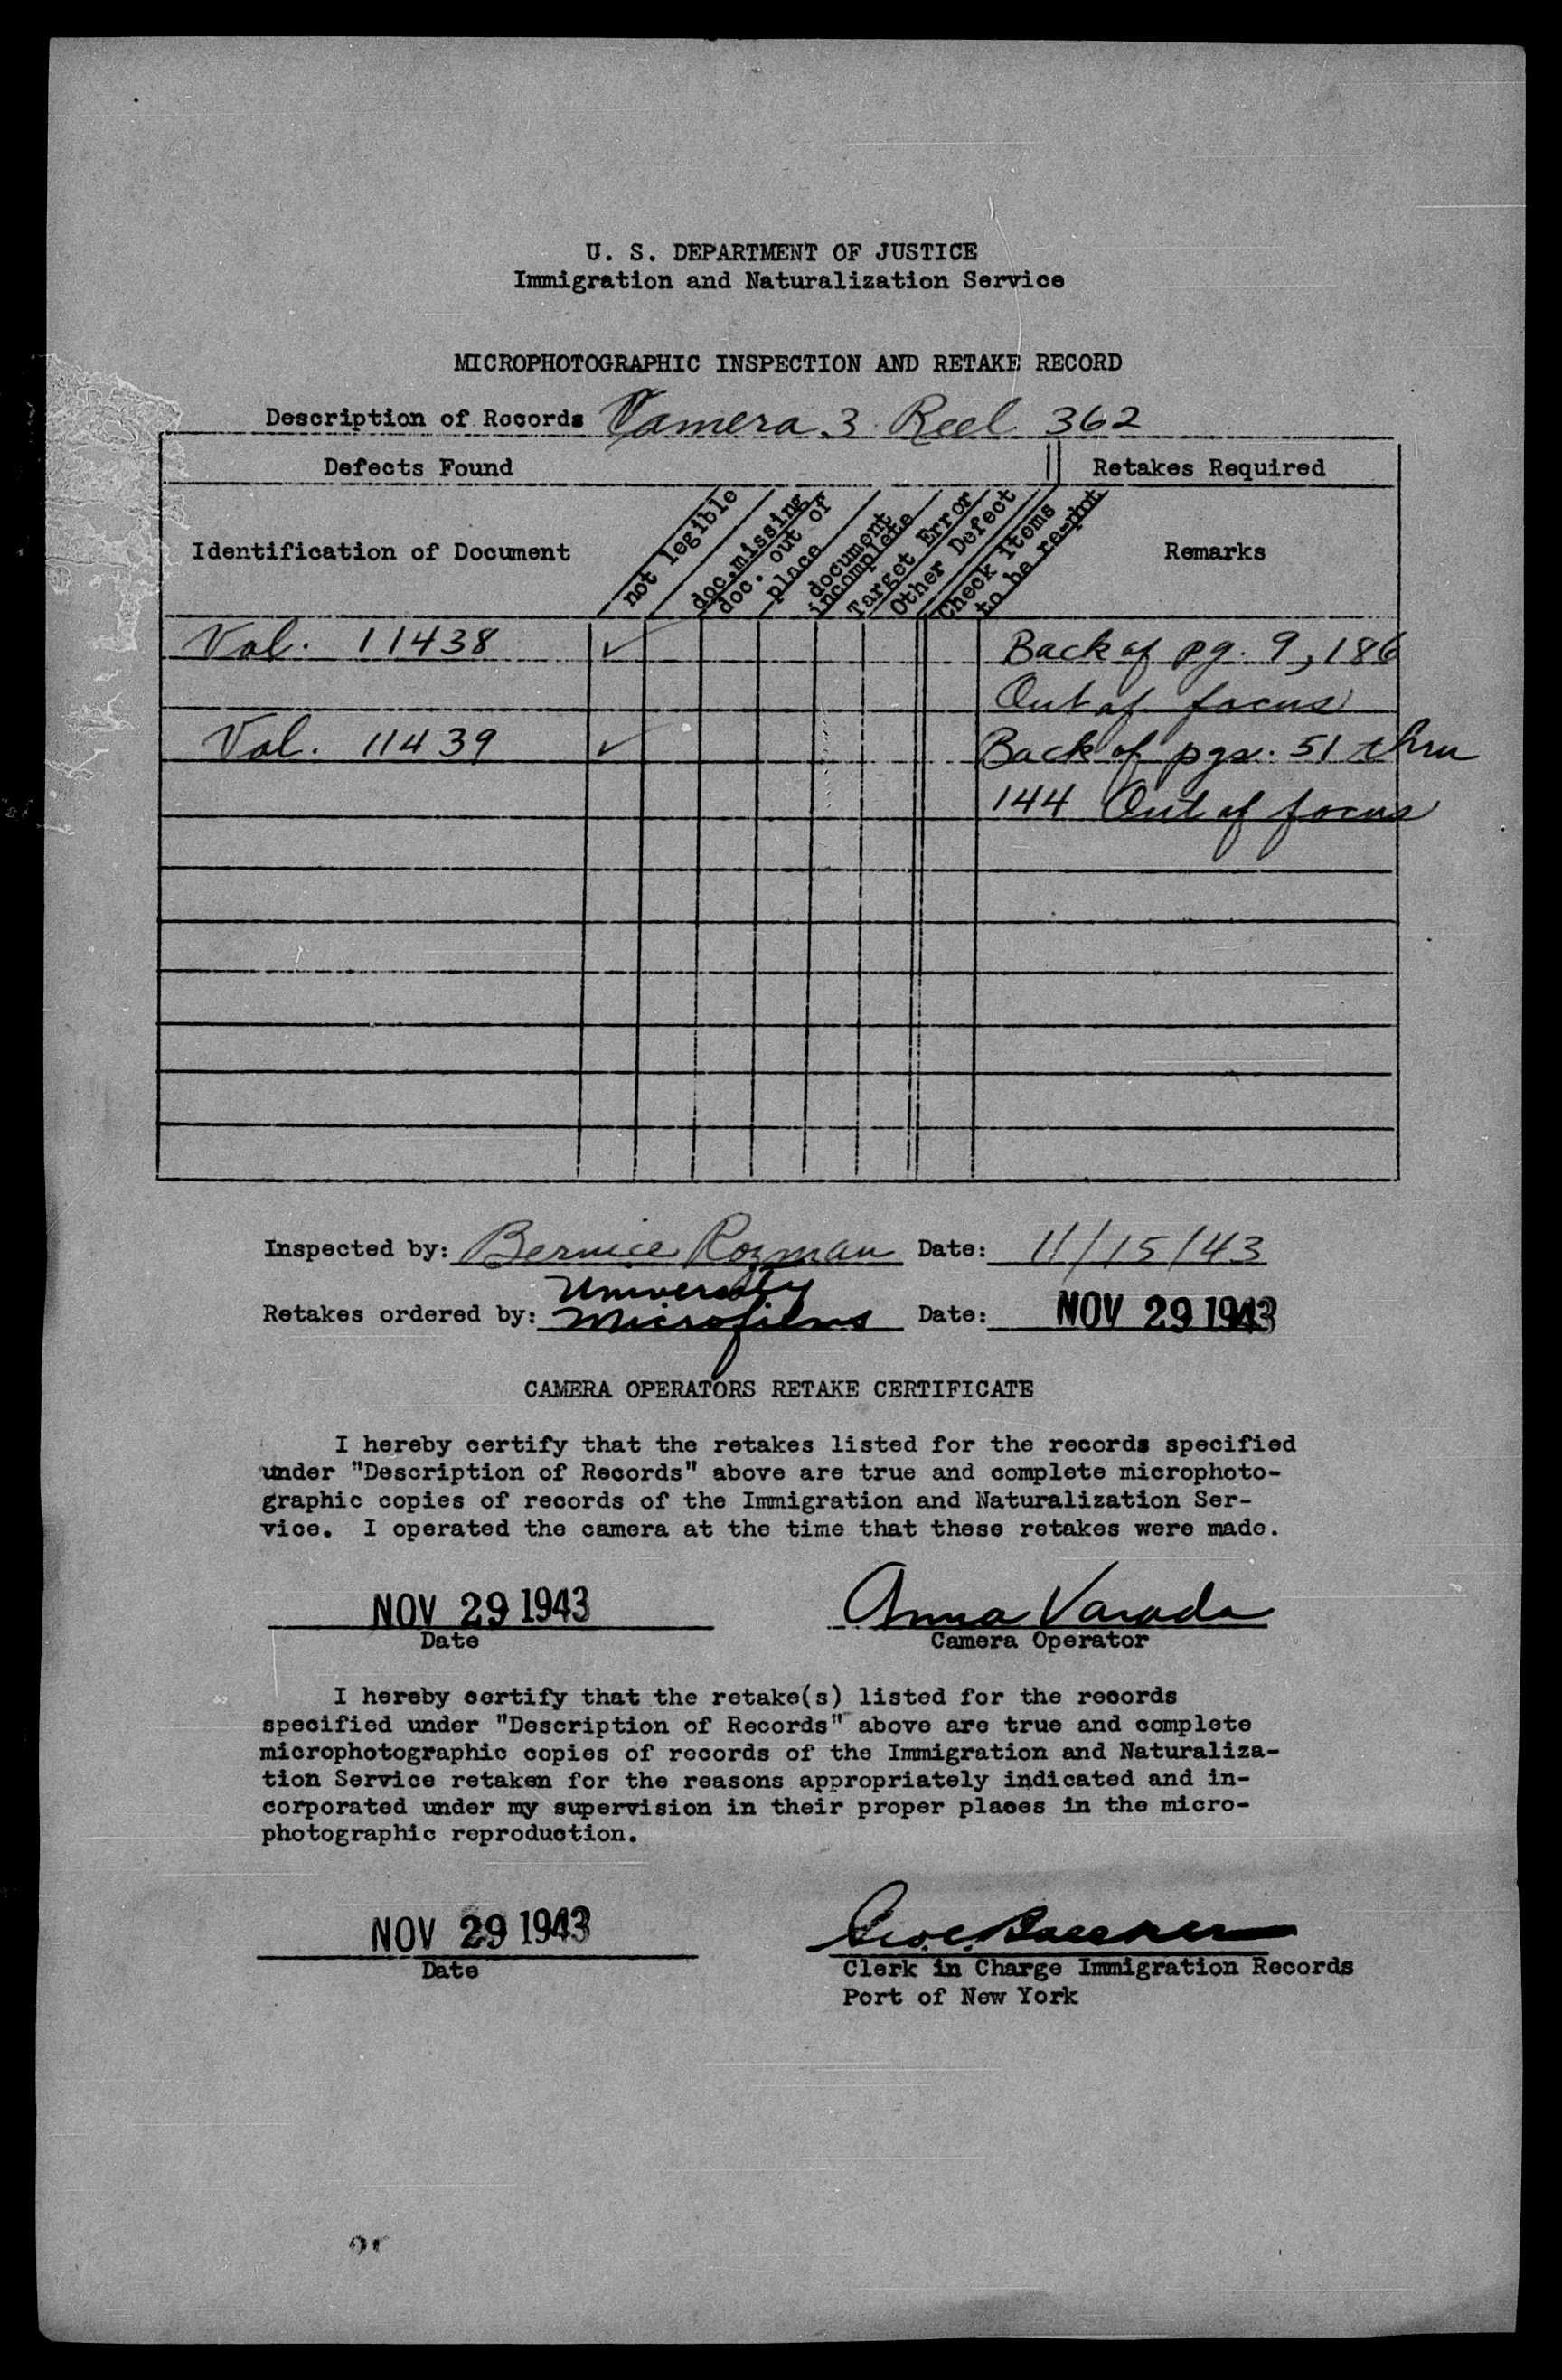 U. S. DEPARTMENT OF JUSTICE
Immigration and Naturalization Service
MICROPHOTOGRAPHIC INSPECTION AND RETAKE RECORD
Description of Records Camera 3 Reel 362
Defects Found Retakes Required
Identification of Document not legible doc. missing doc. out of place document incomplete Target Error Other Defect Check items to be re-phot Remarks
Vol. 11438 ✓ Back of pg. 9, 186
Out of focus
Vol. 11439 ✓ Back of pgs. 51 thru
144 Out of focus
Inspected by: Bernice Rozman Date: 11/15/43
University
Retakes ordered by: Microfilms Date: NOV 29 1943
CAMERA OPERATORS RETAKE CERTIFICATE
I hereby certify that the retakes listed for the records specified
under "Description of Records" above are true and complete microphoto-
graphic copies of records of the Immigration and Naturalization Ser-
vice. I operated the camera at the time that these retakes were made.
NOV 29 1943 Anna Varada
Date Camera Operator
I hereby certify that the retake(s) listed for the records
specified under "Description of Records" above are true and complete
microphotographic copies of records of the Immigration and Naturaliza-
tion Service retaken for the reasons appropriately indicated and in-
corporated under my supervision in their proper places in the micro-
photographic reproduction.
NOV 29 1943
Date Clerk in Charge Immigration Records
Port of New York